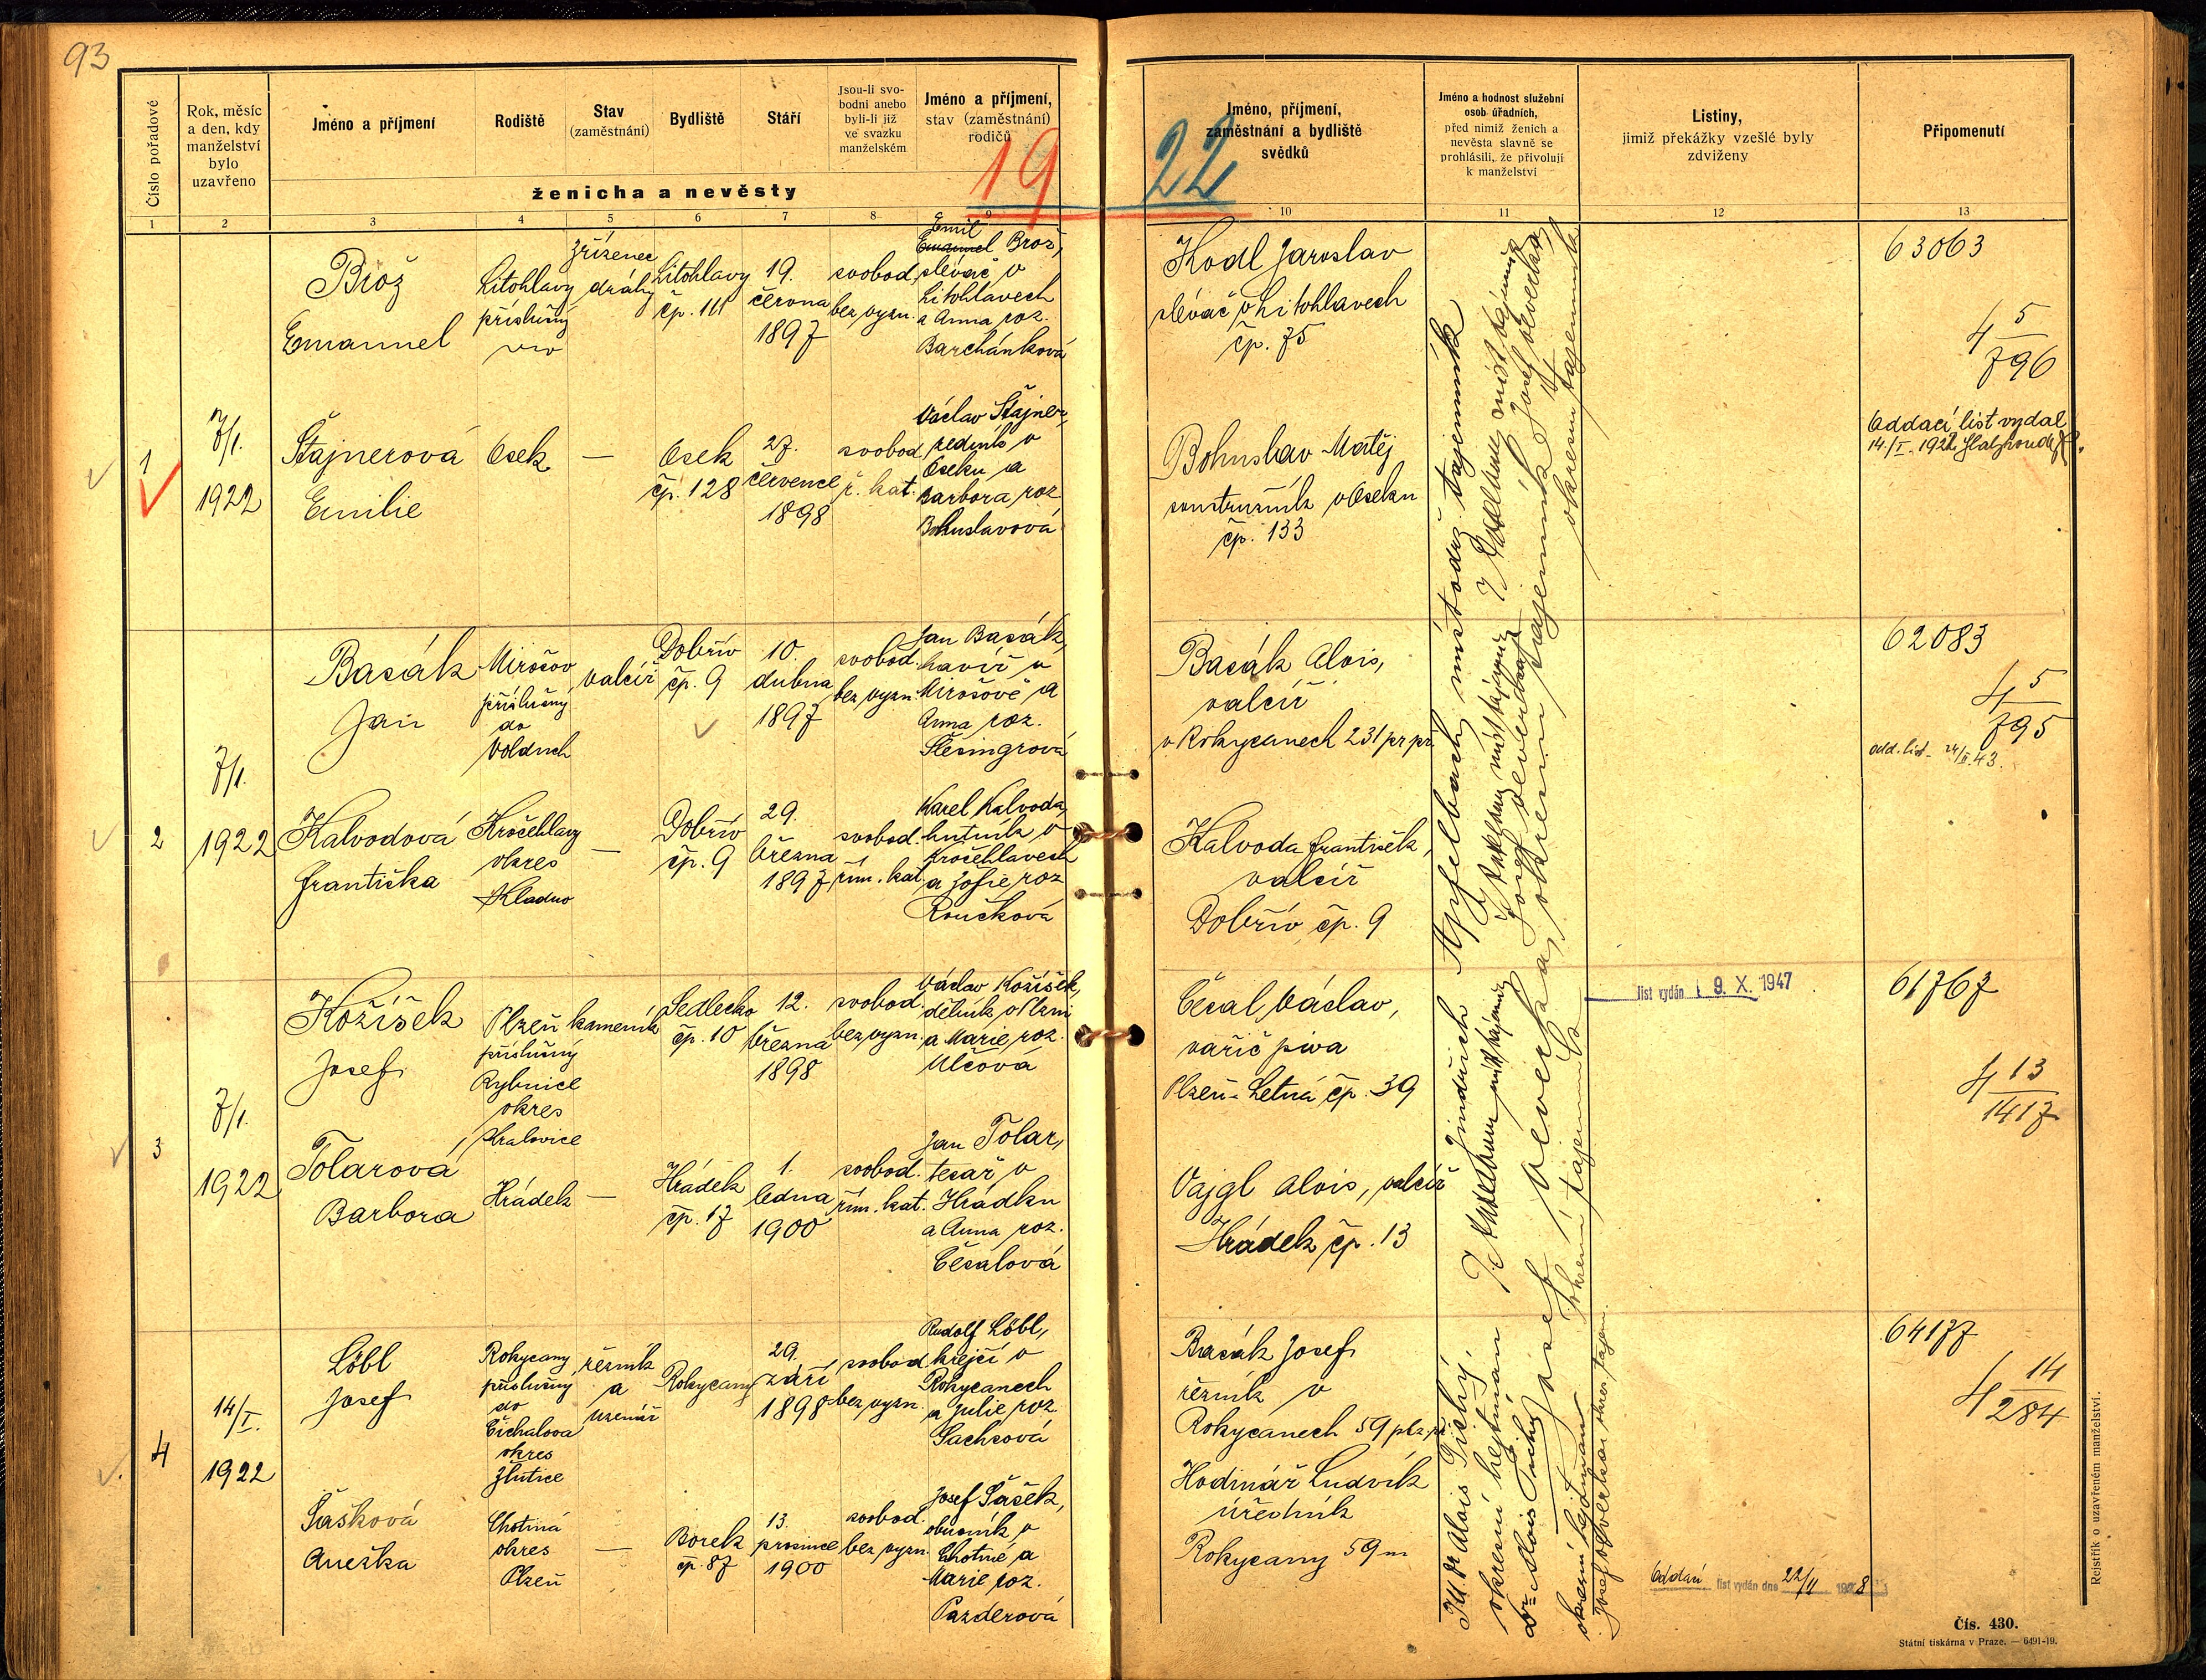 93
Číslo pořadové
Rok, měsíc
a den, kdy
manželství
bylo
uzavřeno
Jméno a příjmení
Rodiště
Stav
(zaměstnání)
Bydliště
Stáří
Jsou-li svo-
bodni anebo
byli-li již
ve svazku
manželském
Jméno a příjmení,
stav (zaměstnání)
rodičů
ženicha a nevěsty
19 22
Jméno, příjmení,
zaměstnání a bydliště
svědků
Jméno a hodnost služební
osob úřadních,
před nimiž ženich a
nevěsta slavně se
prohlásili, že přivolují
k manželství
Listiny,
jimiž překážky vzešlé byly
zdviženy
Připomenutí
1 2 3 4 5 6 7 8 9 10 11 12 13
1
7/1.
1922
Brož
Emanuel
Litohlavy
příslušný
zřízenec
dráhy
Litohlavy
čp. 111
19.
června
1897
svobod.
bez vyzn.
Emil
Emanuel Brož,
slévač v
Litohlavech
a Anna roz.
Barchánková
Kodl Jaroslav
slévač v Litohlavech
čp. 75
63063
5
796
Štajnerová
Emilie
Osek
—
Osek
čp. 128
27.
července
1898
svobod
ř. kat.
Václav Štajner,
v
Oseku a
Barbora roz
Bohuslavová
Bohuslav Matěj
soustružník v Oseku
čp. 133
Oddací list vydal
14./I. 1922
2
7/1.
1922
Basák
Jan
Mirošov
příslušný
do
Volduch
valcíř
Dobřív
čp. 9
10.
dubna
1897
svobod.
bez vyzn.
Jan Basák,
havíř v
Mirošově a
Anna roz.
Šlesingrová
Basák Alois,
valcíř
v Rokycanech 231 pr. př.
62083
5
795
odd. list 24/II. 43.
Kalvodová
Františka
Kročehlavy
okres
Kladno
—
Dobřív
čp. 9
29.
března
1897
svobod.
řím. kat.
Karel Kalvoda,
hutník v
Kročehlavech
a Žofie roz
Roučková
Kalvoda František,
valcíř
Dobřív čp. 9
3
7/1.
1922
Kožíšek
Josef
Plzeň
příslušný
Rybnice
okres
Kralovice
kameník
Sedlecko
čp. 10
12.
března
1898
svobod.
bez vyzn.
Václav Kožíšek,
dělník v Plzni
a Marie roz.
Ulčová
Česal Václav,
vařič piva
Plzeň-Letná čp. 39
list vydán 9. X. 1947
61767
13
1417
Tolarová
Barbora
Hrádek
—
Hrádek
čp. 17
1.
ledna
1900
svobod.
řím. kat.
Jan Tolar,
tesař v
Hrádku
a Anna roz.
Česalová
Vajgl Alois, valcíř
Hrádek čp. 13
4
14/I.
1922
Löbl
Josef
Rokycany
příslušný
do
Čichalova
okres
Žlutice
řezník
a
uzenář
Rokycany
29.
září
1898
svobod.
bez vyzn.
Rudolf Löbl,
krejčí v
Rokycanech
a Julie roz.
Sachsová
Basák Josef
řezník v
Rokycanech 59 plz. př.
64177
14
284
Šašková
Anežka
Chotiná
okres
Plzeň
—
Borek
čp. 87
13.
prosince
1900
svobod.
bez vyzn.
Josef Šašek,
v
Chotiné a
Marie roz.
Pazderová
Hodinář Ludvík
úředník
Rokycany 59 m
Oddací list vydán dne 22/II 1948
JUDr Alois Tichý, Jindřich Apfelbach, místodrž. tajemník
okresní hejtman
Dr. Alois Tichý
okresní hejtman
Josef Veverka
okresní tajemník
Rejstřík o uzavřeném manželství.
Čís. 430.
Státní tiskárna v Praze. — 6491-19.